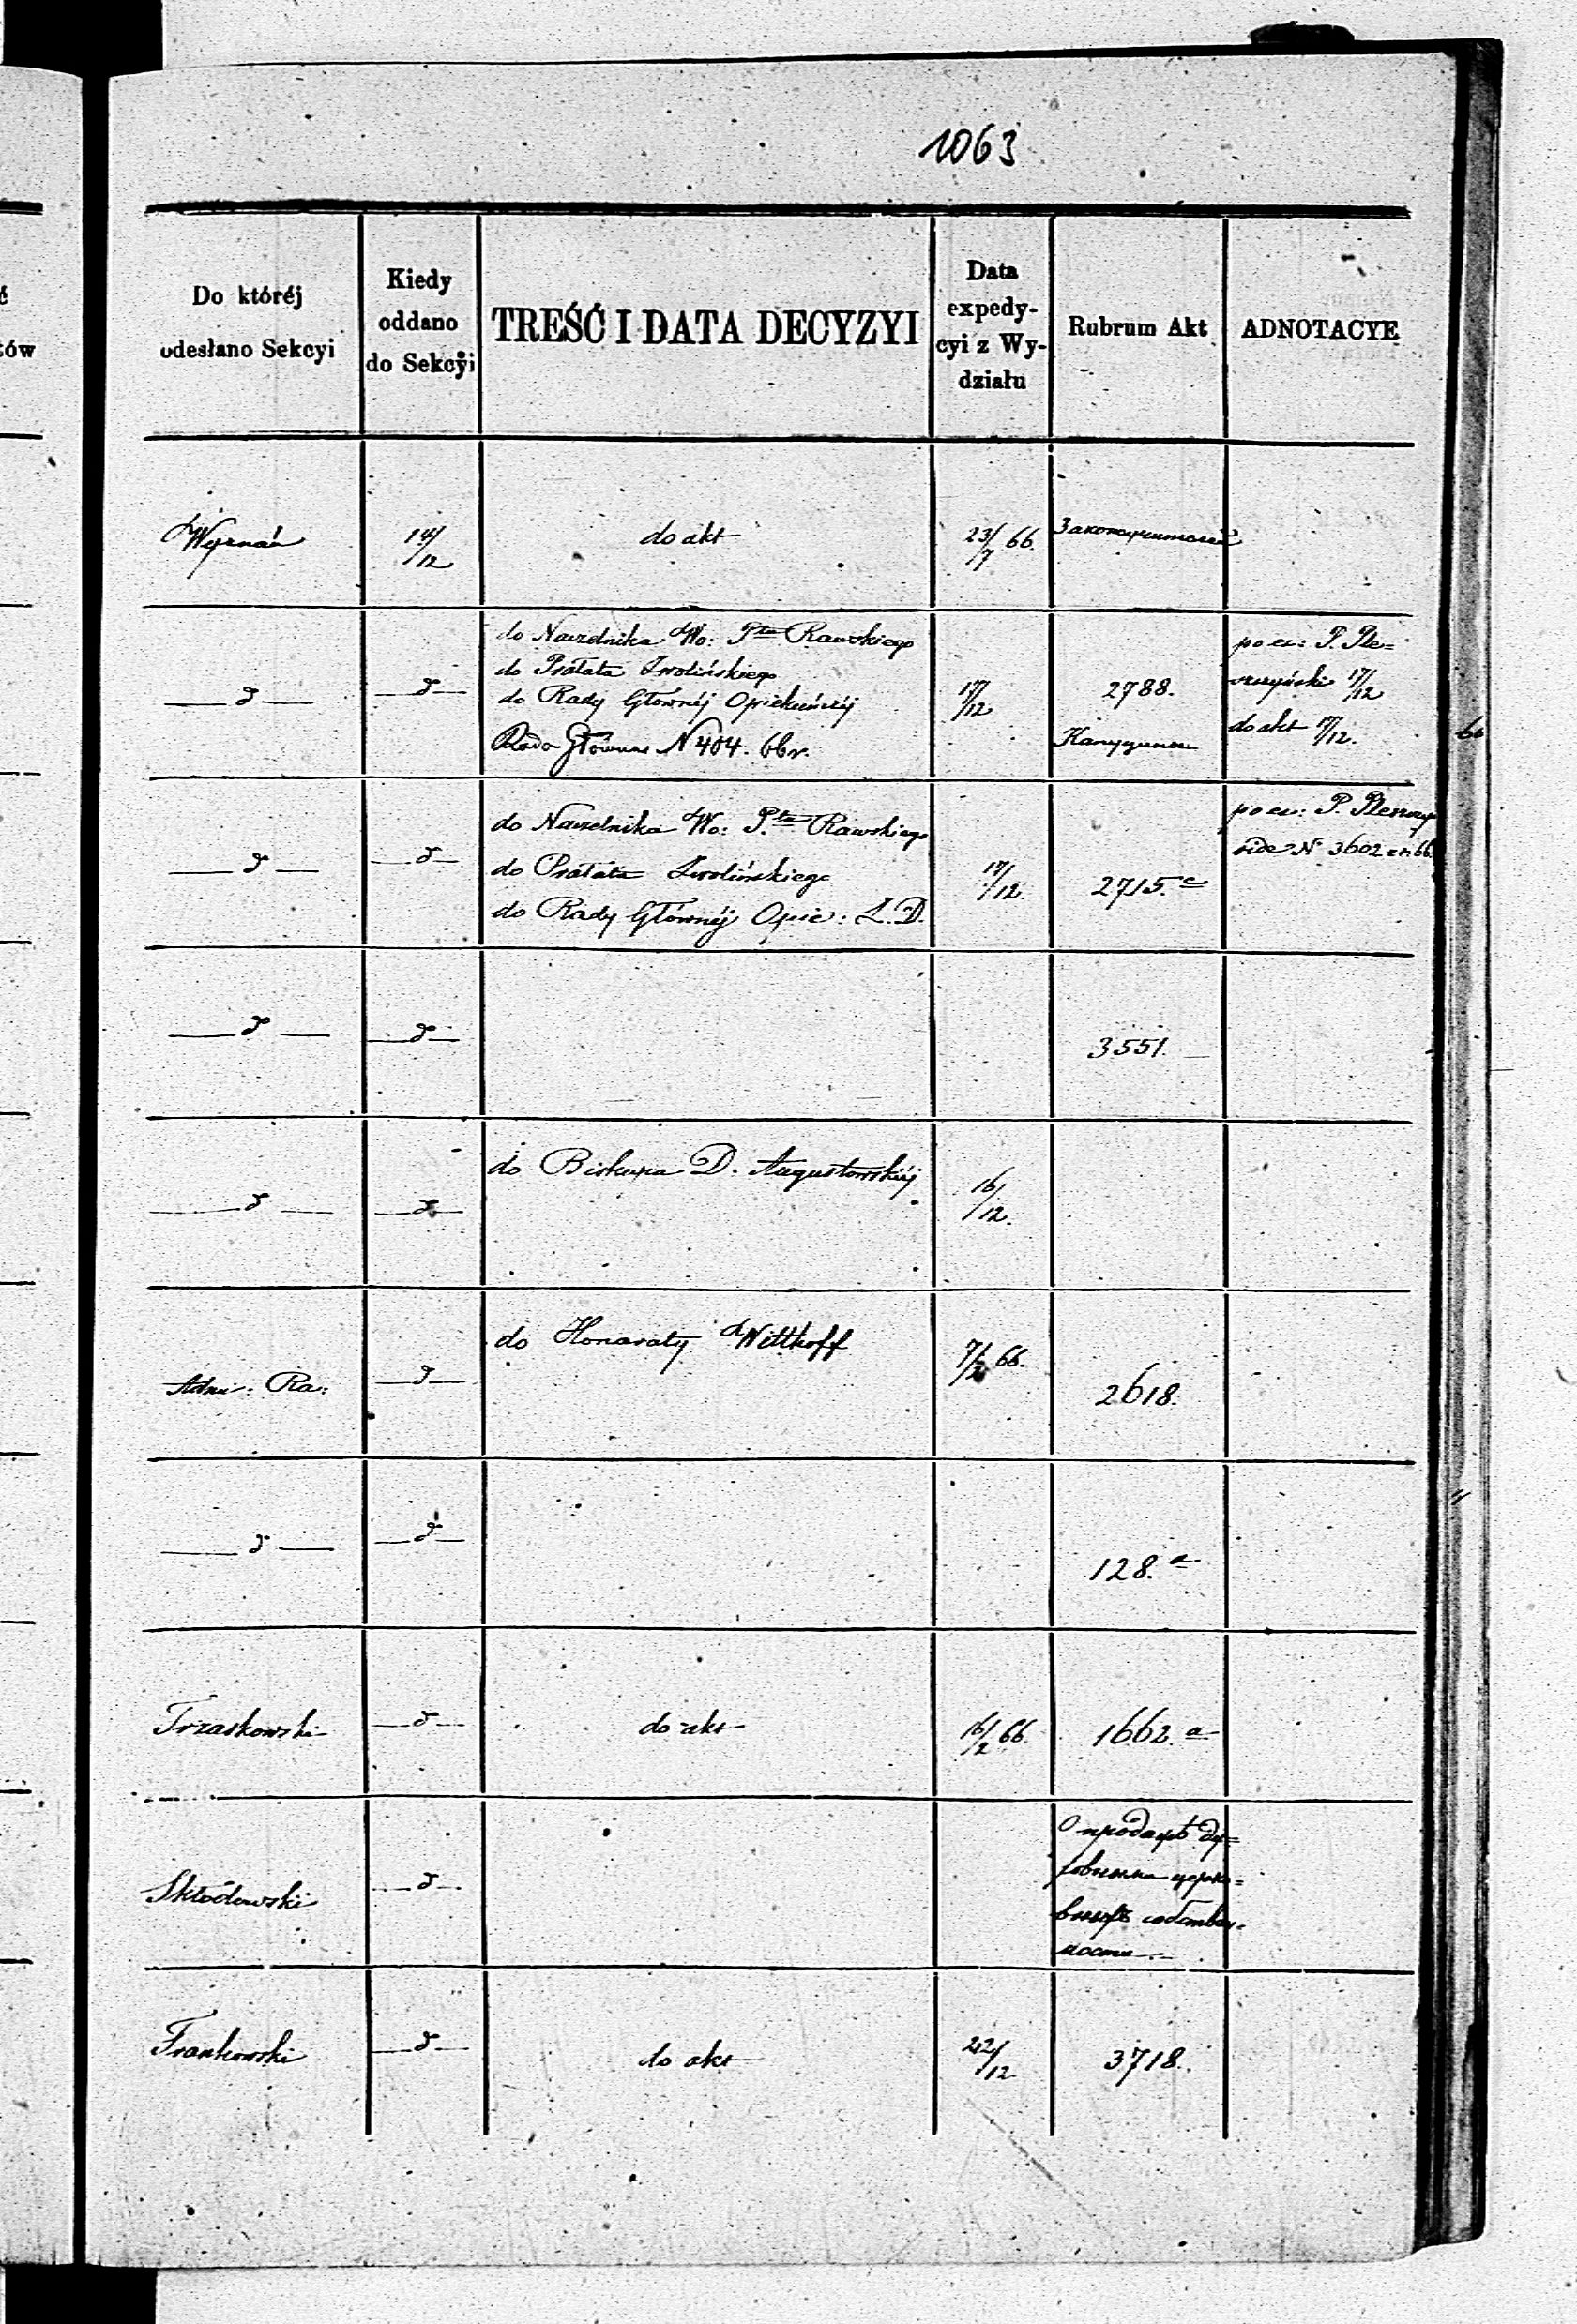 1063
Do któréj
odesłano Sekcyi
Kiedy
oddano
do Sekcyi
TREŚĆ I DATA DECYZYI
Data
expedy-
cyi z Wy-
działu
Rubrum Akt
ADNOTACYE
Wyznań
14/12
do akt
23/7 66.
— d —
— d —
do Naczelnika Wo: Ptu Rawskiego
do Prałata Zwolińskiego
do Rady Głównéj Opiekuńczéj
Rada Główna N 404. 66 r.
17/12
2788.
po ex: P. Ple=
szczyński 17/12
do akt 17/12.
— d —
— d —
do Naczelnika Wo: P.tu Rawskiego
do Prałata Zwolińskiego
do Rady Głównéj Opie: Z. D.
17/12.
2715.c
po ex: P. Pleszczy
vide N 3602 ex 66
— d —
— d —
3551.
— d —
— d —
do Biskupa D. Augustowskiéj
16/12.
Admi: Ra:
— d —
do Honoraty Witthoff
7/2 66.
2618.
— d —
— d —
128.a
Trzaskowski
— d —
do akt
16/2 66.
1662.a
Skłodowski
— d —
О продажѣ ду=
ховныхъ церко=
вныхъ собствен=
ности
Frankowski
— d —
do akt
22/12
3718.
ć
tów
66